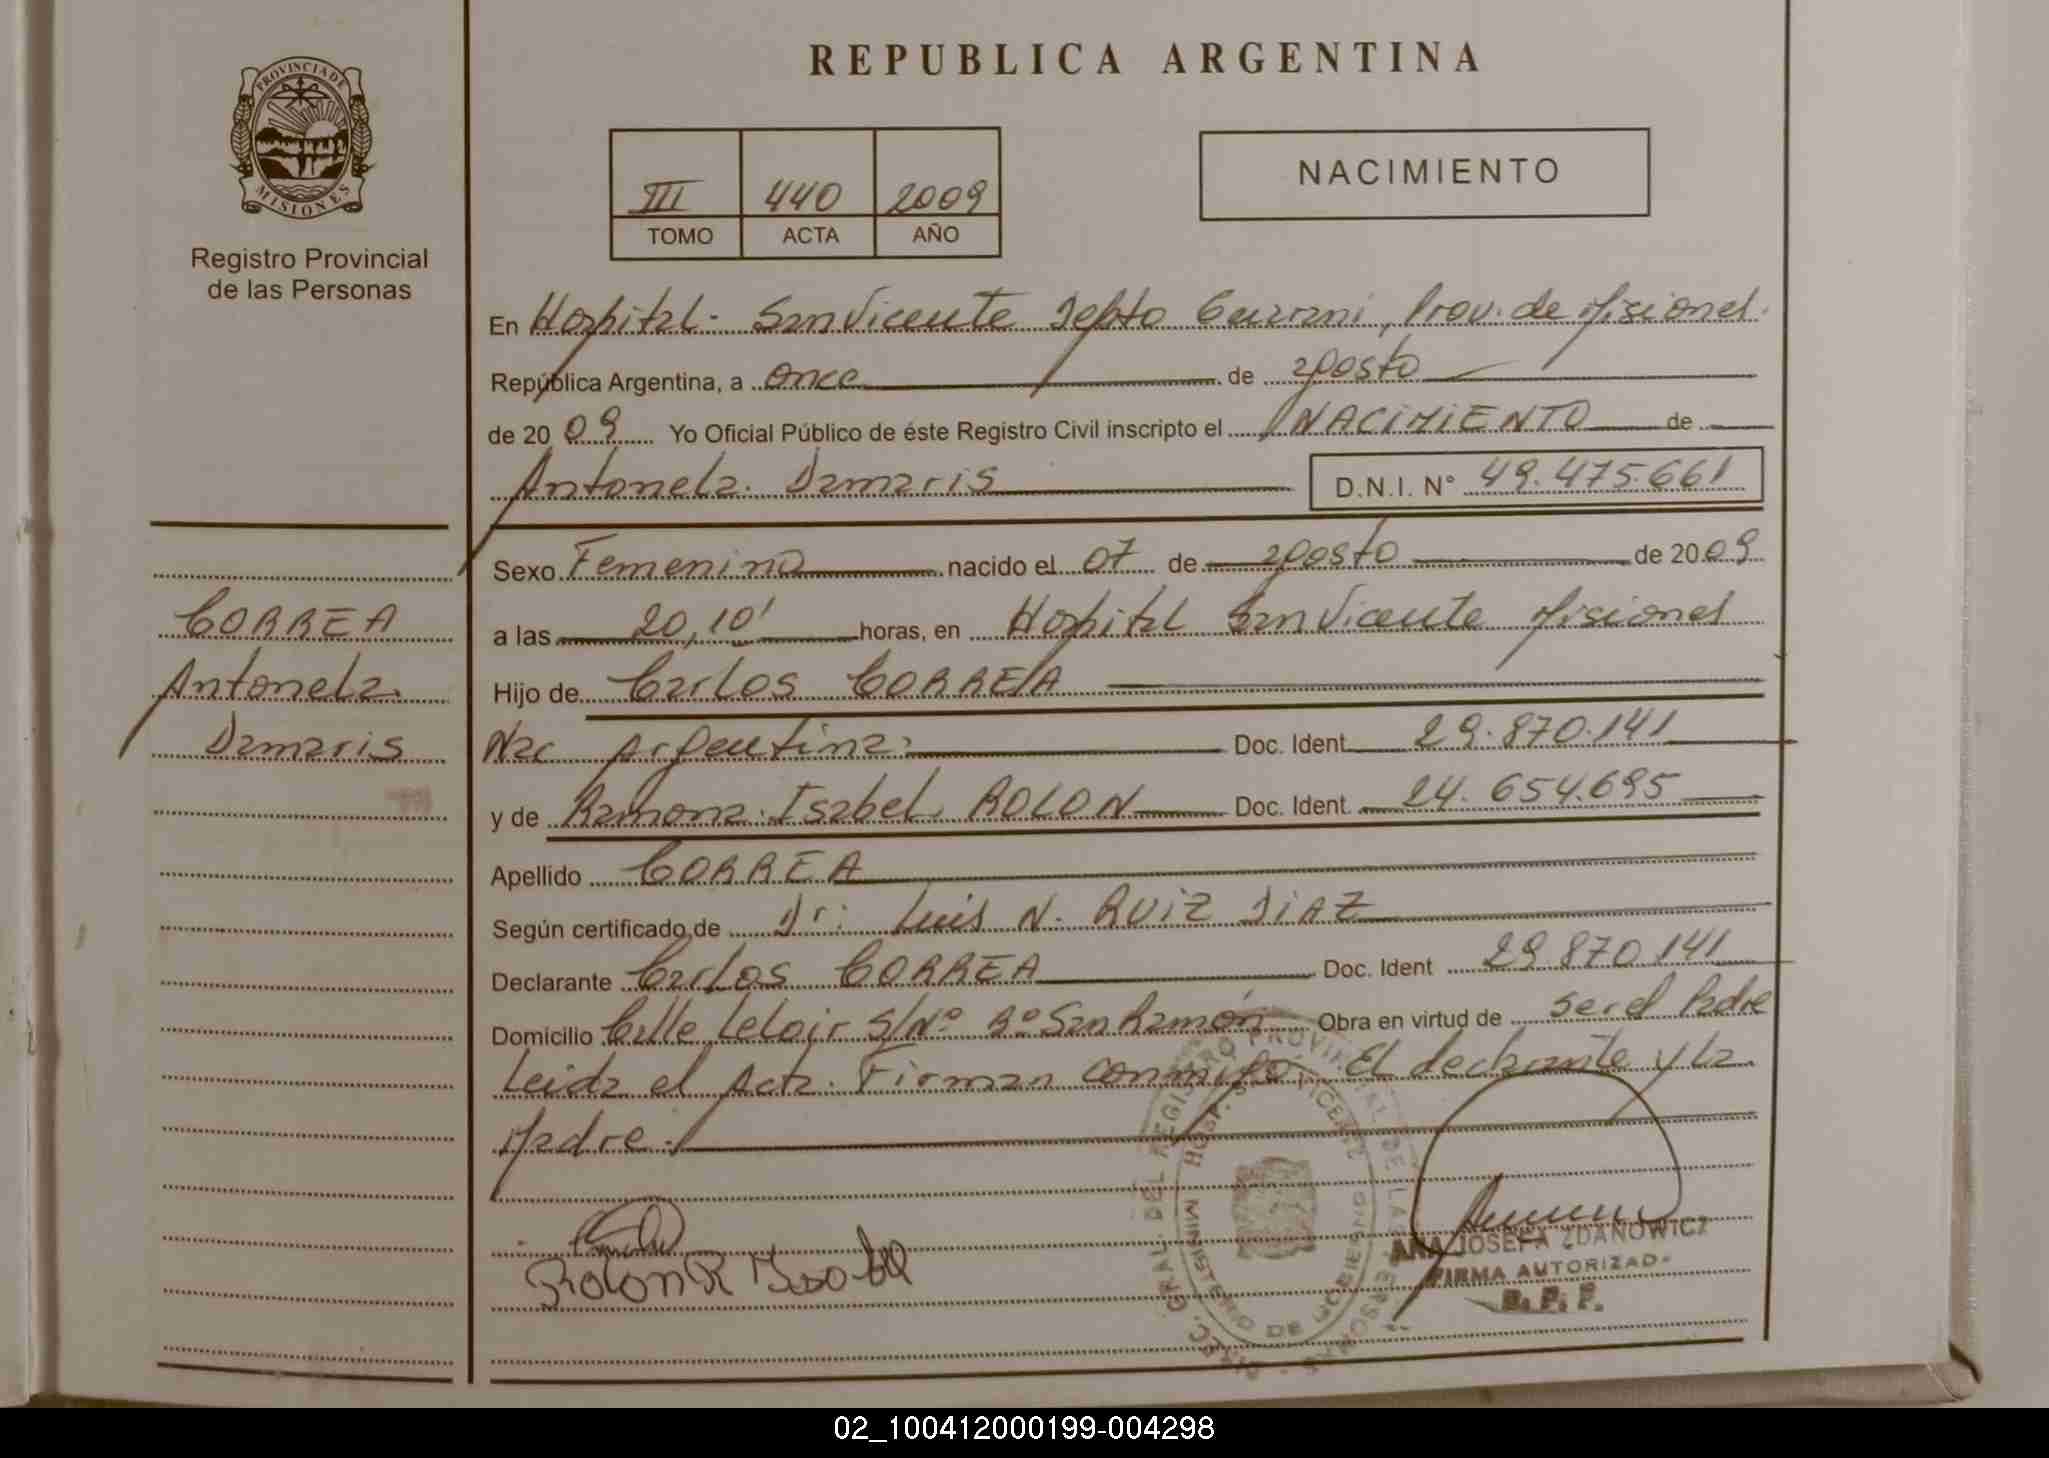 REPUBLICA ARGENTINA
PROVINCIA DE
MISIONES
Registro Provincial
de las Personas
III 440 2009
TOMO ACTA AÑO
NACIMIENTO
En Hospital San Vicente Depto Guarani, Prov. de Misiones.
República Argentina, a once de agosto
de 2009 Yo Oficial Público de éste Registro Civil inscripto el NACIMIENTO de
Antonela Damaris D.N.I. N° 49.475.661
Sexo Femenino nacido el 07 de agosto de 2009
a las 20,10' horas, en Hospital San Vicente Misiones
Hijo de Carlos CORREA
Nac Argentina Doc. Ident. 29.870.141
y de Ramona Isabel ROLON Doc. Ident. 24.654.695
Apellido CORREA
Según certificado de Dr: Luis N. RUIZ DIAZ
Declarante Carlos CORREA Doc. Ident 29 870 141
Domicilio Calle Leloir S/Nº Bº San Ramón Obra en virtud de ser el Padre
Leida el Acta. Firman conmigo, El declarante y la
Madre.
CORREA
Antonela
Damaris
Rolon R Isabel
DIREC. GRAL. DEL REGISTRO PROVINCIAL DE LAS PERSONAS
HOSP. SAN VICENTE
MINISTERIO DE GOBIERNO
ANA JOSEFA ZDANOWICZ
FIRMA AUTORIZAD
R. P. P.
02_100412000199-004298